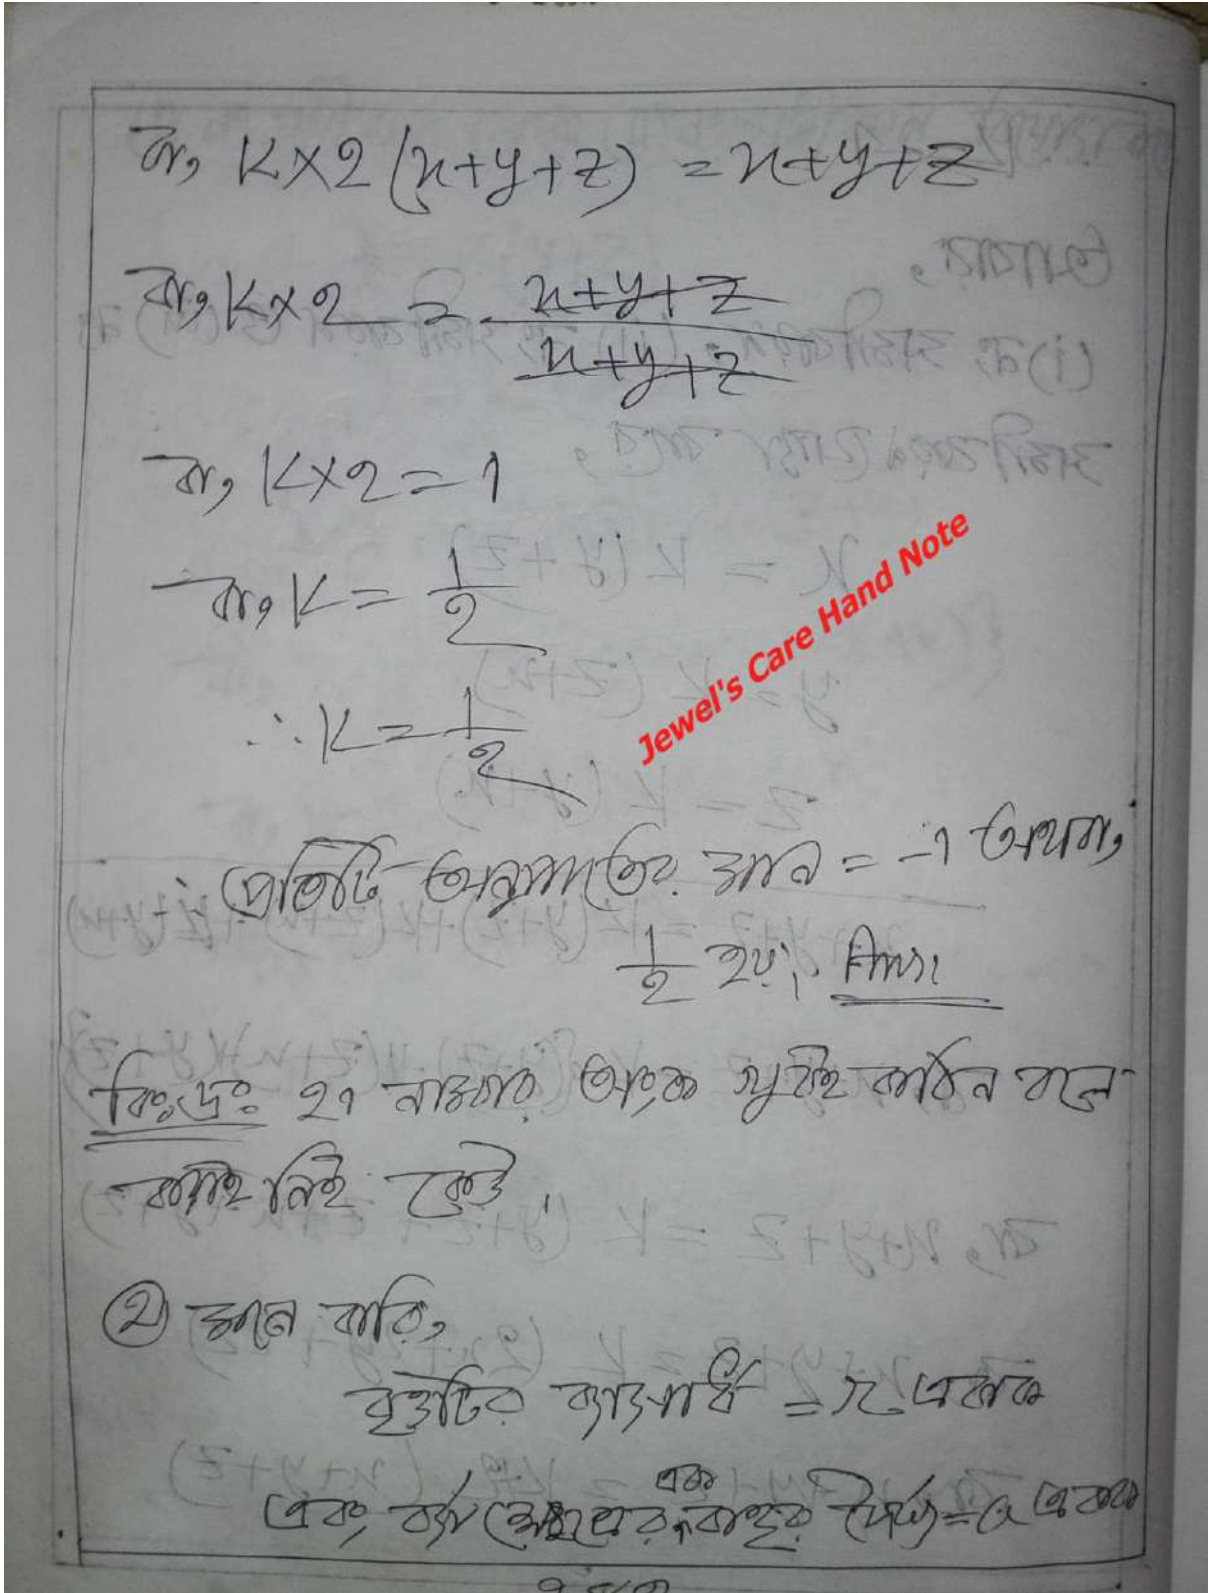 বা, K×2 (x+y+z) = x+y+z
বা, K×2 = x+y+z / x+y+z
বা, K×2 = 1
বা, K = 1/2
∴ K = 1/2
Jewel's Care Hand Note
∴ প্রতিটি অনুপাতের মান = -1 অথবা,
1/2 হয়। Ans:
বিঃদ্রঃ ২৭ নাম্বার অংক খুবই কঠিন বলে
করাই নিই কেউ।
মনে করি,
বৃত্তটির ব্যাসার্ধ = r একক
এবং বর্গ ক্ষেত্রের এক বাহুর দৈর্ঘ্য = a একক